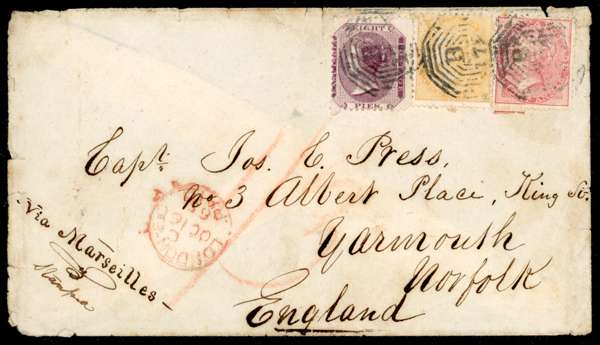 EIGHT
PIES
B
Capt. Jos. E. Press,
No 3 Albert Place, King St.
Yarmouth
Norfolk
England
Via Marseilles
LONDON
OC 16